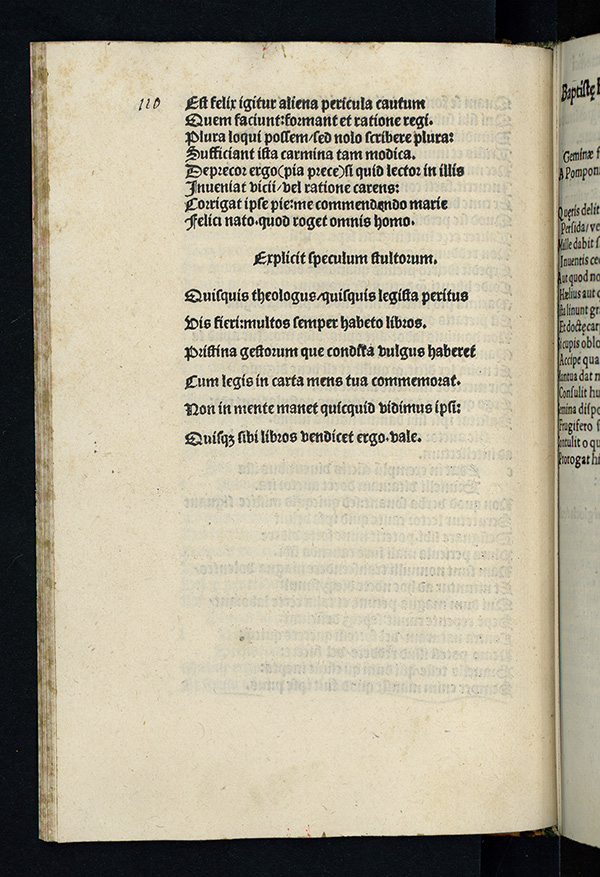 110
Est felix igitur aliena pericula cautum
Quem faciunt:formant et ratione regi.
Plura loqui possem/sed nolo scribere plura:
Sufficiant ista carmina tam modica.
Deprecor ergo(pia prece)si quid lector in illis
Inueniat vicii/vel ratione carens:
Corrigat ipse pie:me commendendo marie
Felici nato.quod roget omnis homo.
Explicit speculum stultorum.
Quisquis theologus/quisquis legista peritus
Vis fieri:multos semper habeto libros.
Pristina gestorum que condita vulgus haberet
Cum legis in carta mens tua commemorat.
Non in mente manet quicquid vidimus ipsi:
Quisqꝫ sibi libros vendicet ergo.vale.
Baptistę
Geminæ
A Pompon
Quęris delit
Persida/ve
Mille dabit
Inuentis
Aut quod no
Hælius aut
linunt gr
Et doctę car
cupis oblo
Accipe qua
dat
Consulit hu
dispo
Frugifero
o qu
Prorogat